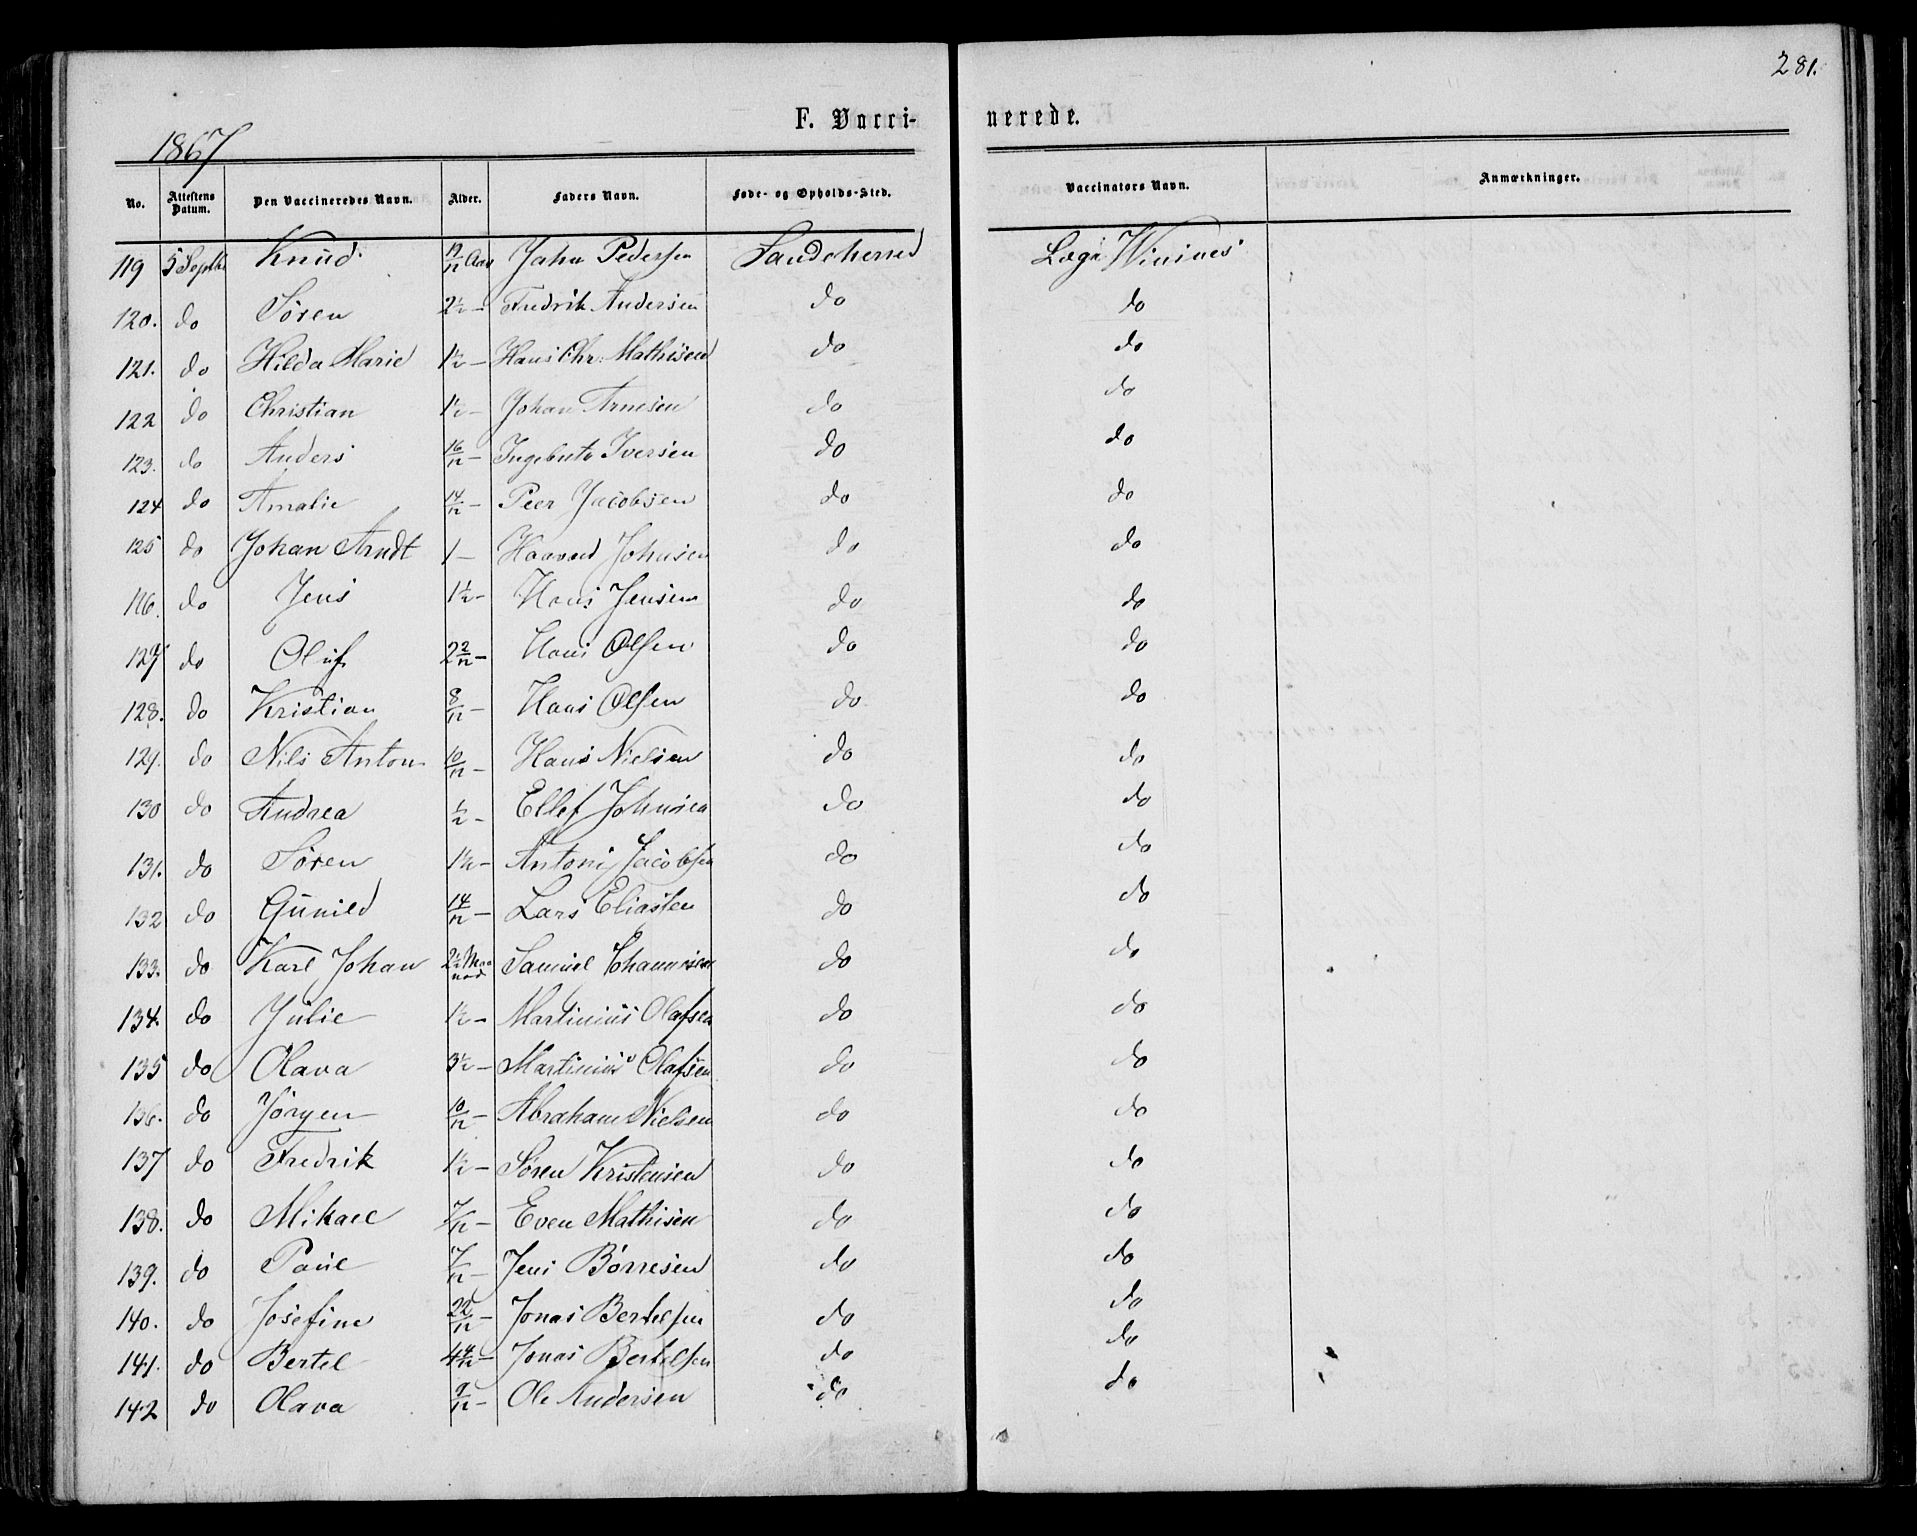 281.
F. Vacci-
nerede.
1867
No. Attestens Datum. Den Vaccineredes Navn. Alder. Faders Navn. Føde- og Opholds-Sted. Vaccinators Navn. Anmærkninger.
119 5 Septbr Knud 12/12 Aar John Pedersen Sandeherred Læge
120. do Søren 2½ — Fredrik Andersen do do
121. do Hilda Marie 1½ — Hans Chr. Mathisen do do
122 do Christian 1½ — Johan Arnesen do do
123. do Anders 16/12 — Ingebret Iversen do do
124 do Amalie 14/12 — Peer Jacobsen do do
125 do Johan Arndt 1 — Haavard Johnsen do do
116. do Jens 1½ — Hans Jensen do do
127 do Oluf 2 2/12 — Hans Olsen do do
128. do Kristian 8/12 — Hans Olsen do do
129. do Nils Anton 10/12 — Hans Nielsen do do
130 do Andrea ½ — Ellef Johnsen do do
131. do Søren 1½ — Antoni Jacobsen do do
132 do Gunild 14/12 — Lars Eliassen do do
133. do Karl Johan 2½ Maanod Samuel Johannisen do do
134. do Julie 1½ — Martinius Olafsen do do
135 do Olava 3½ — Martinius Olafsen do do
136. do Jörgen 10/12 — Abraham Nielsen do do
137 do Fredrik 1½ — Søren Kristensen do do
138. do Mikael 7/12 — Even Mathisen do do
139. do Paul 7/12 — Jens Børresen do do
140. do Josefine 22/12 — Jonas Bertelsen do do
141. do Bertel 4 4/12 — Jonas Bertelsen do do
142 do Olava 9/12 — Ole Andersen do do